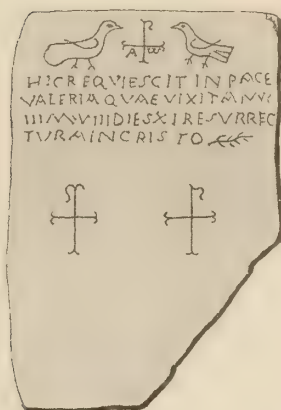 A ω
HIC REQVIESCIT IN PACE
VALERIA QVAE VIXIT ANVI
III M VIII DIES XI RESVRREC
TVRA IN CRISTO